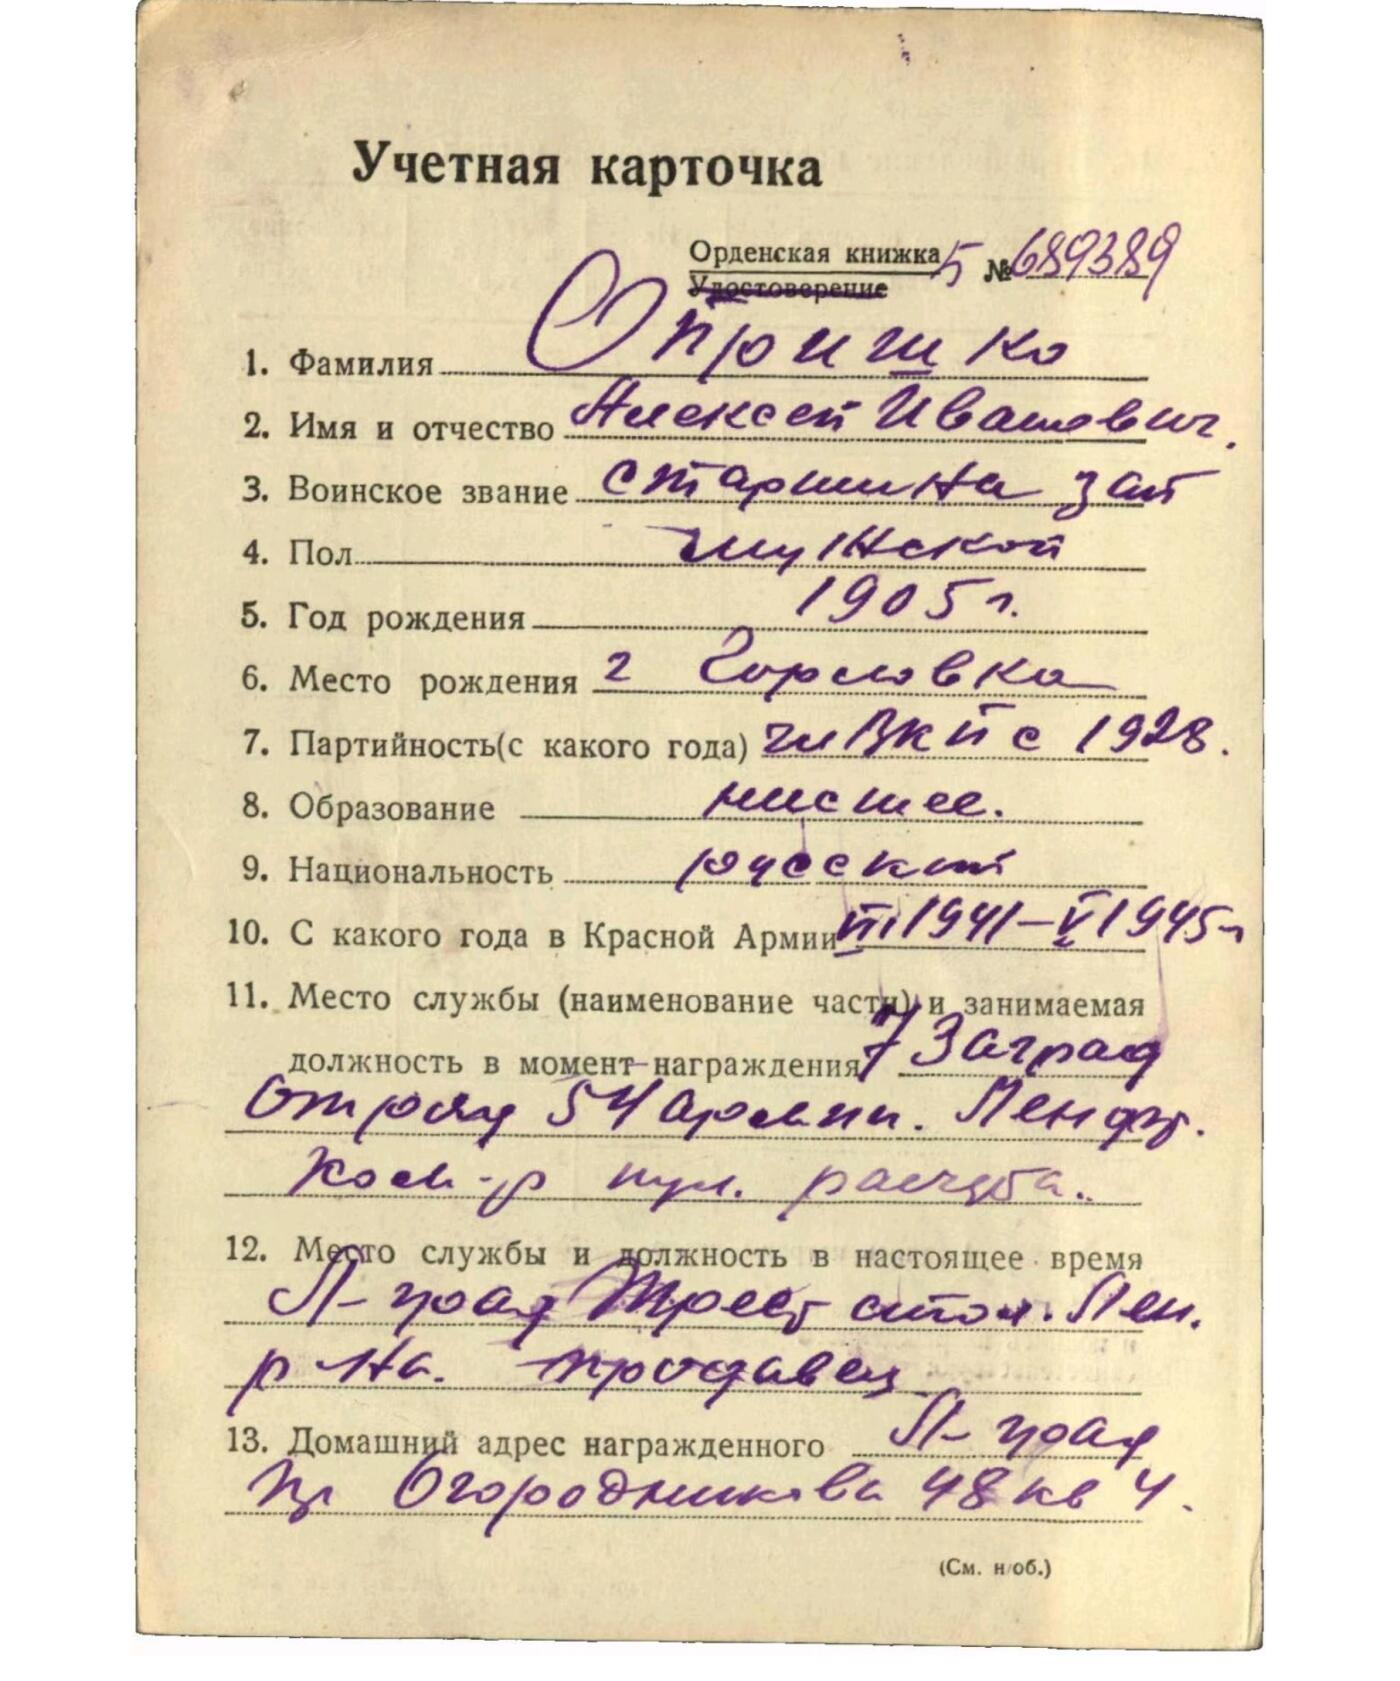 Учетная карточка
Орденская книжка Б № 689389
Удостоверение
1. Фамилия Опришко
2. Имя и отчество Алексей Иванович.
3. Воинское звание старшина зап
4. Пол мужской
5. Год рождения 1905 г.
6. Место рождения г Горловка
7. Партийность(с какого года) чл ВКП с 1928.
8. Образование низшее.
9. Национальность русский
10. С какого года в Красной Армии 1941-V 1945 г
11. Место службы (наименование части) и занимаемая
должность в момент награждения 7 Заград
Отряд 54 армии. Лен фр.
Ком-р пул. расчета.
12. Место службы и должность в настоящее время
Л-град Трест стол. Лен.
р-на. продавец
13. Домашний адрес награжденного Л-град
пр Огородникова 48 кв 4.
(См. н/об.)